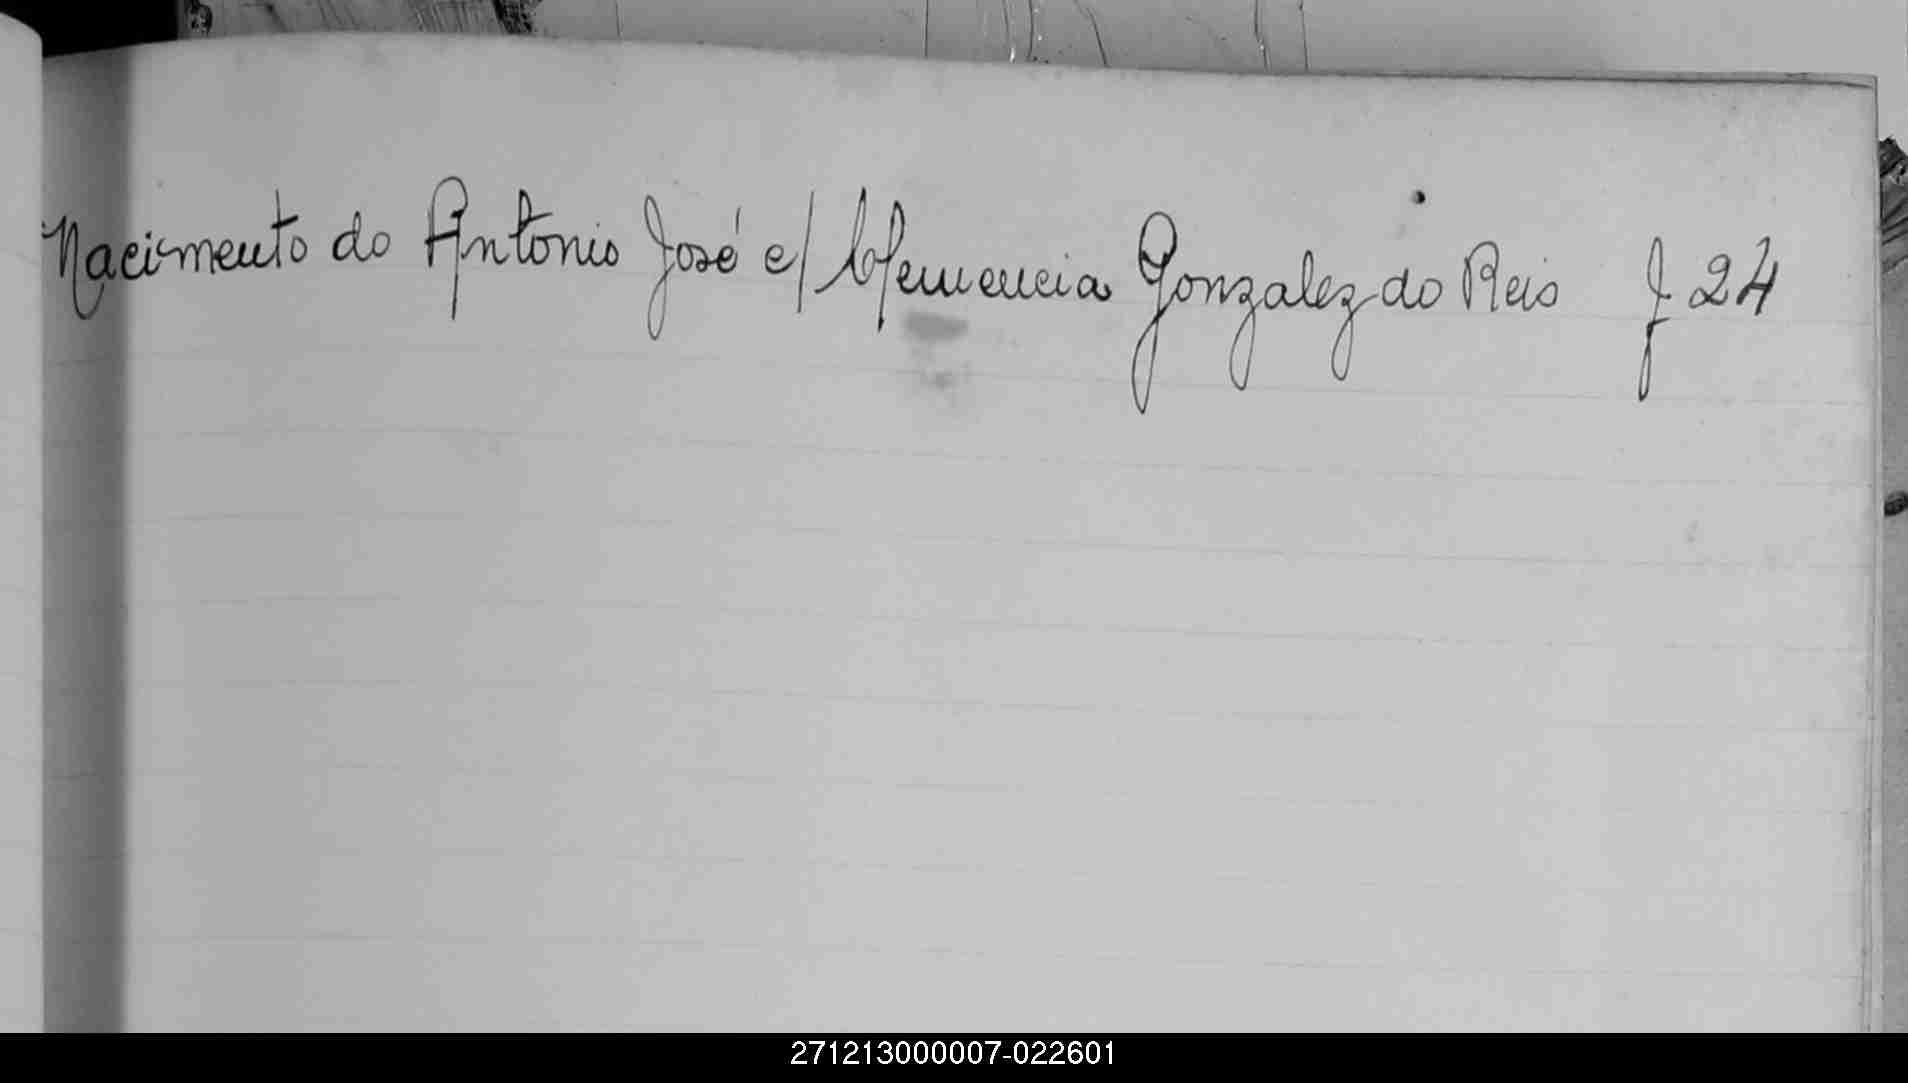 Nacimento do Antonio José e/ Clemencia Gonzalez do Reis f 24
271213000007-022601